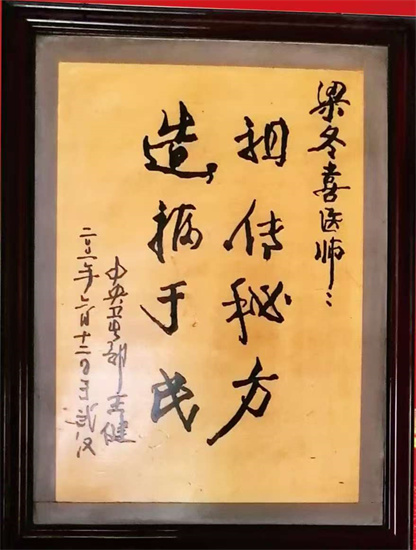 梁冬喜医师：
祖传秘方
造福于民
中央卫生部 王健
二〇〇一年六月十二日于武汉